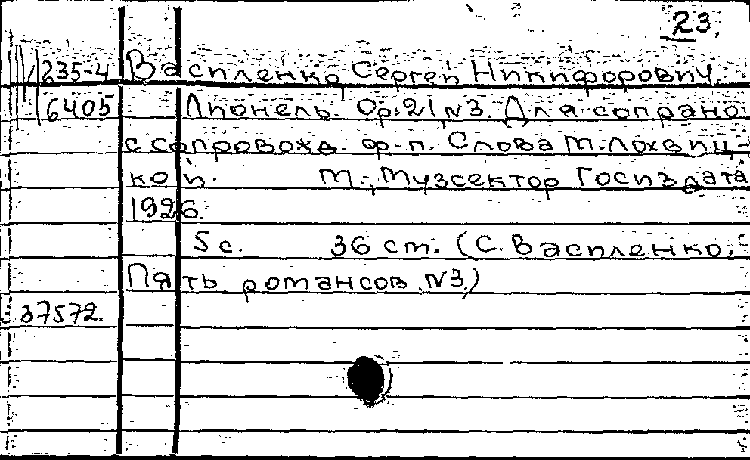 23.
235-4 Василенко, Сергей Никифорович.
6405 Лионель. Op. 21, N3. Для сопрано
с сопровожд. ф-п. Слова М. Лохвиц-
кой. М., Музсектор Госиздата
1926.
5 с. 36 cm. (С. Василенко,
Пять романсов N3.)
37572.